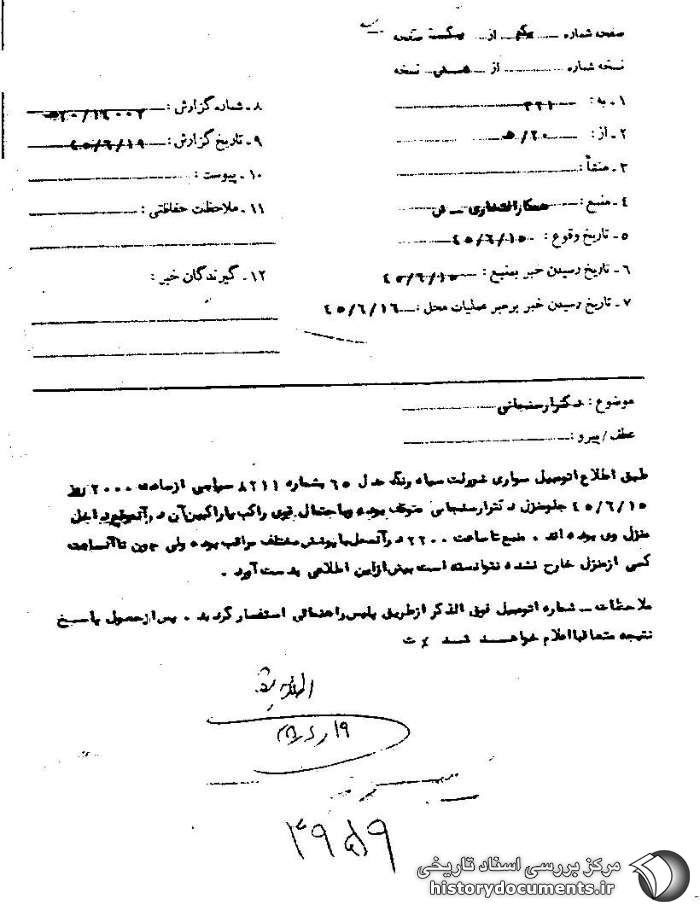 صفحه شماره یکم از یکست صفحه
نسخه شماره از نسخه
۱ـ به: ۳۲۱
۲ـ از: ۲۰/ه
۳ـ منشأ:
۴ـ منبع: همکار افتخاری ـ ش
۵ـ تاریخ وقوع: ۴۵/۶/۱۵
۶ـ تاریخ رسیدن خبر بمنبع: ۴۵/۶/۱۵
۷ـ تاریخ رسیدن خبر برهبر عملیات محل: ۴۵/۶/۱۶
۸ـ شماره گزارش: ۲۰/۱۴۰۰۲
۹ـ تاریخ گزارش: ۴۵/۶/۱۹
۱۰ـ پیوست:
۱۱ـ ملاحظات حفاظتی:
۱۲ـ گیرندگان خبر:
موضوع: دکتر ارسنجانی
عطف/پیرو:
طبق اطلاع اتومبیل سواری شورلت سیاه رنگ مدل ۶۵ بشماره ۸۲۱۱ سیاسی از ساعت ۲۰۰۰ روز
۴۵/۶/۱۵ جلو منزل دکتر ارسنجانی متوقف بوده و باحتمال قوی راکب یا راکبین آن در آنموقع در داخل
منزل وی بوده اند . منبع تا ساعت ۲۲۰۰ در آنمحل با پوشش مختلف مراقب بوده ولی چون تا آنساعت
کسی از منزل خارج نشده نتوانسته است بیش از این اطلاعی بدست آورد .
ملاحظات ـ شماره اتومبیل فوق الذکر از طریق پلیس راهنمائی استفسار گردید . پس از حصول پاسخ
نتیجه متعاقبا اعلام خواهد شد ٪ ت
مرکز بررسی اسناد تاریخی
historydocuments.ir